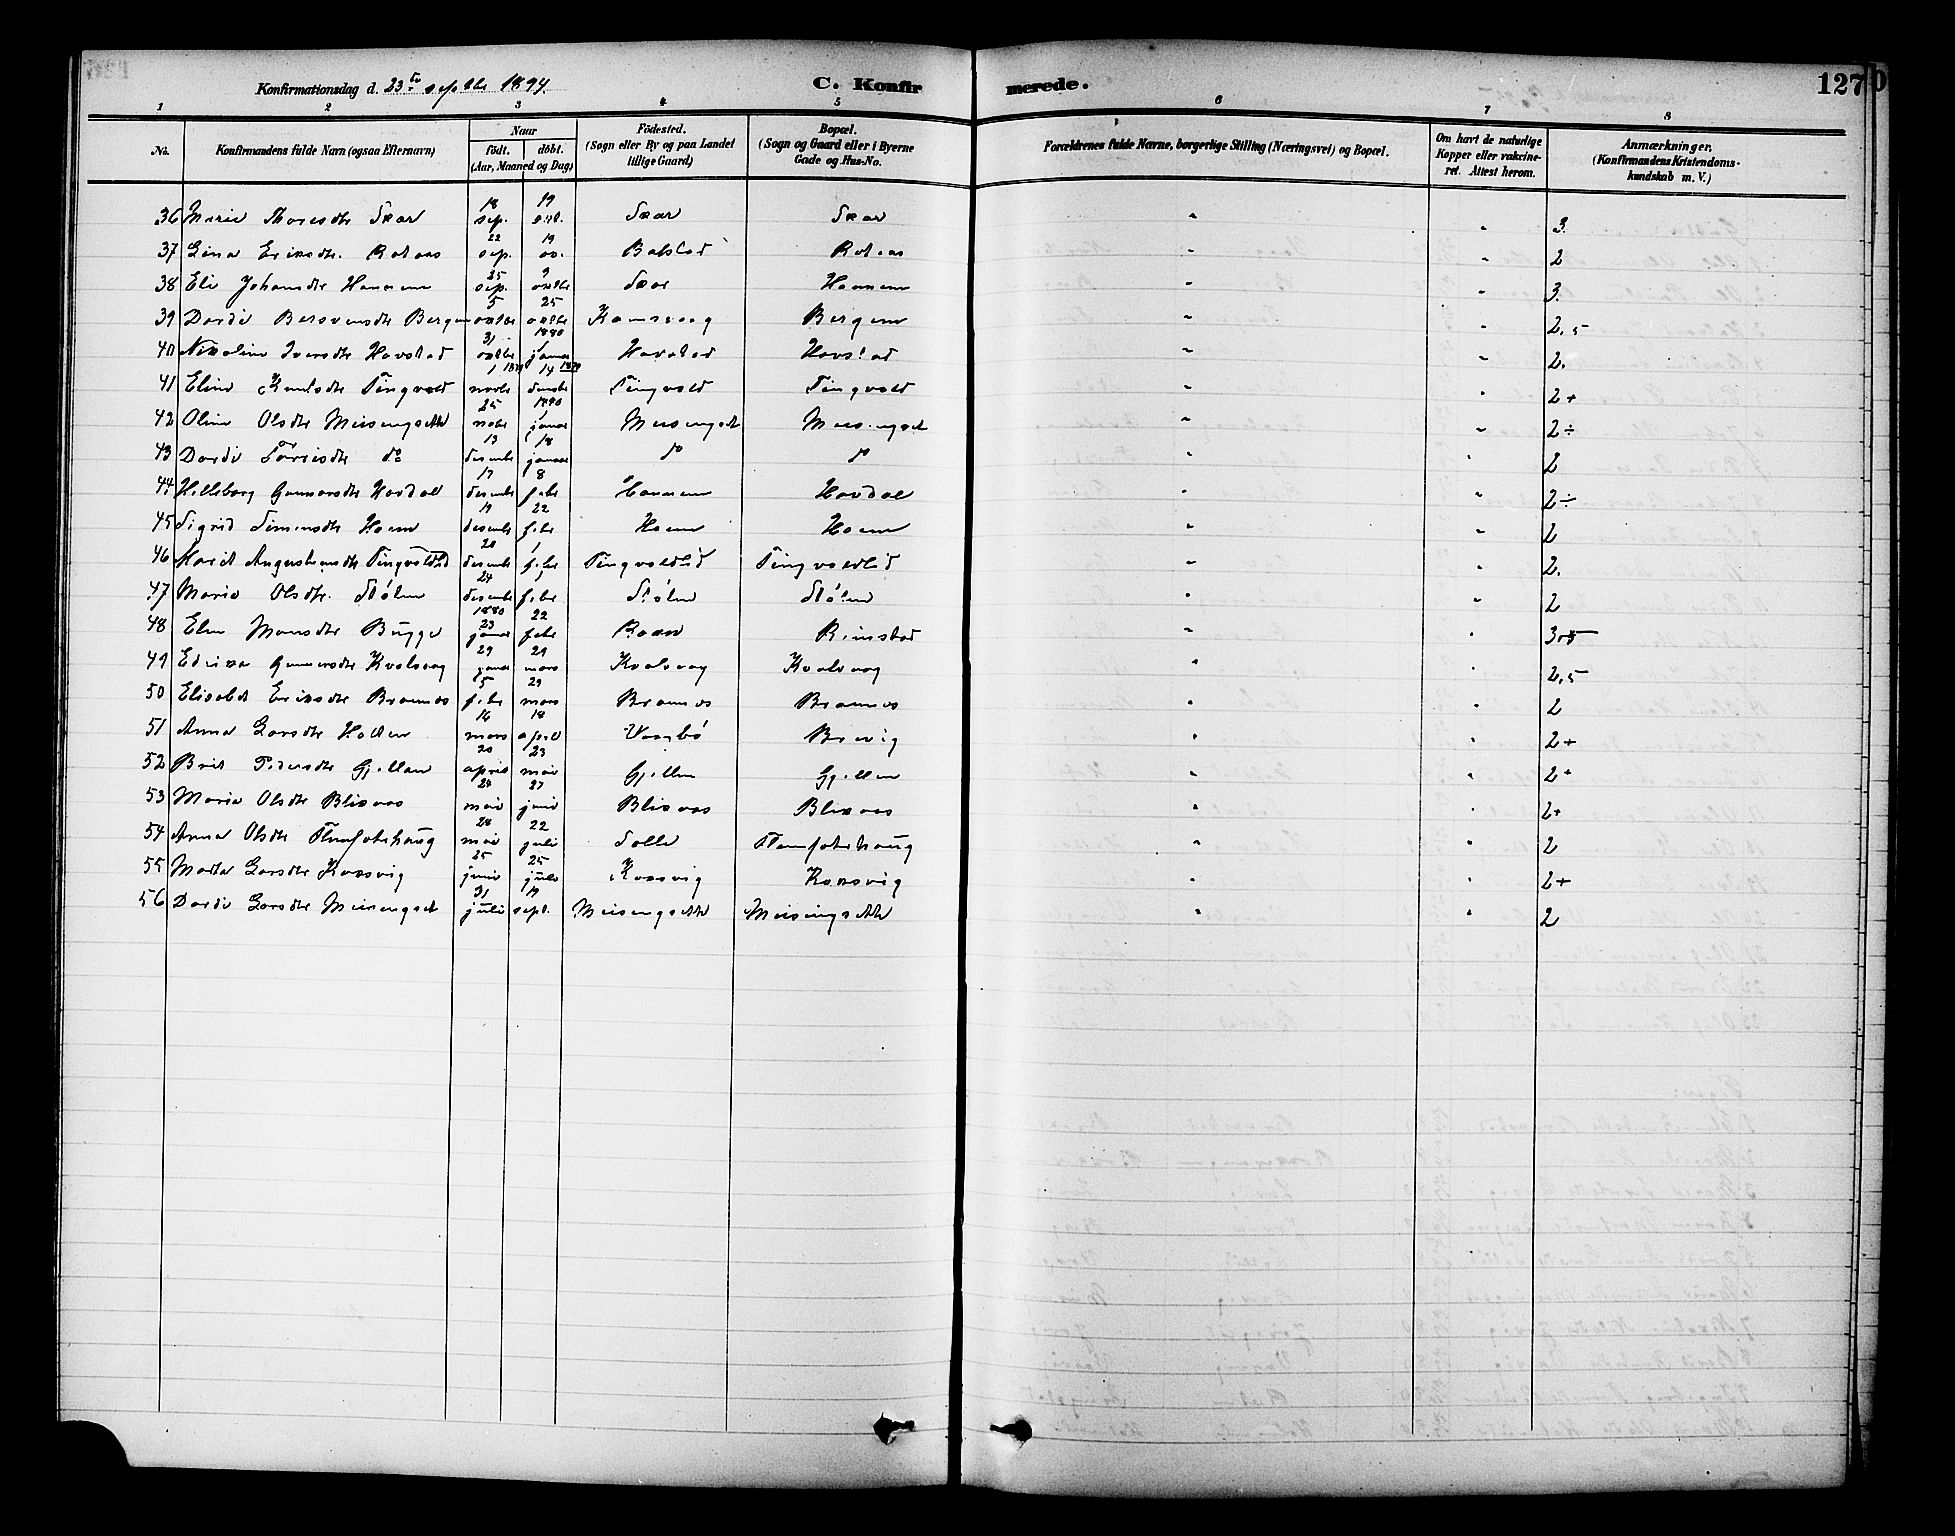 Konfirmationsdag d. 23de septbr 1894.
C. Konfirmerede.
127
1 2 3 4 5 6 7 8
No.
Konfirmandens fulde Navn (ogsaa Efternavn)
Naar
födt. döbt.
(Aar, Maaned og Dag)
Födested.
(Sogn eller By og paa Landet
tillige Gaard)
Bopæl.
(Sogn og Gaard eller i Byerne
Gade og Hus-No.
Forældrenes fulde Navne, borgerlige Stilling (Næringsvei) og Bopæl.
Om havt de naturlige
Kopper eller vakcine-
ret. Attest herom.
Anmærkninger.
(Konfirmandens Kristendoms-
kundskab m. V.)
36 Marie Skar 18 sep. 19 okt. Skar Skar " " 3.
37 Lina Eriksdtr. Rotaas 22 sep. 19 Rotaas " " 2
38 Eli Johansdtr Hannem 25 sep. 9 oktbr Skar Hannem " " 3.
39 Dordi Bersvensdtr Bergem 5 oktbr 25 oktbr Kamsvaag Bergem " " 2,5
40 Nikoline Iversdtr Havstad 31 oktbr 1880 januar Havstad Havstad " " 2.
41 Eline Knutsdtr Tingvold 1 1879 novbr 14 1879 desbr Tingvold Tingvold " " 2+
42 Oline Olsdtr Meisingsetr 25 novbr 1880 januar Meisingset Meisingset " " 2÷
43 Dordi do 13 desembr 18 januar do do " " 2
44 Hilleborg Gunnarsdtr Hovdal 17 desembr 8 febr Hannem Hovdal " " 2÷
45 Sigrid Simensdtr Hoem 19 desembr 22 febr Hoem Hoem " " 2
46 Marit Tingvoldlid 20 desembr 1 febr Tingvoldlid Tingvoldlid " " 2.
47 Maria Olsdtr. Stölen 24 desembr febr Stölen Stölen " " 2
48 Elen Monsdtr Bugge 1880 23 januar 22 febr Rimstad " " 3+5
49 Gunnarsdtr Kvalvaag 29 januar 29 mars Kvalvaag Kvalvaag " " 2,5
50 Elisabet Eriksdtr Bramnes 5 febr 29 mars Bramnes Bramnes " " 2
51 Anna Larsdtr Holten 16 mars 18 april Vaagbö Brevig " " 2+
52 Brit Pedersdtr Gjillen 20 april 23 mai Gjillen Gjillen " " 2+
53 Maria Olsdtr Blixaas 24 mai 27 juni Blixaas Blixaas " " 2+
54 Anna Olsdtr 28 mai 22 juli " " 2
55 Marta Larsdtr Korsvig 25 juni 25 juli Korsvig Korsvig " " 2+
56 Dordi Larsdtr Meisingset 31 juli 19 sept. Meisingsetr Meisingsetr " " 2